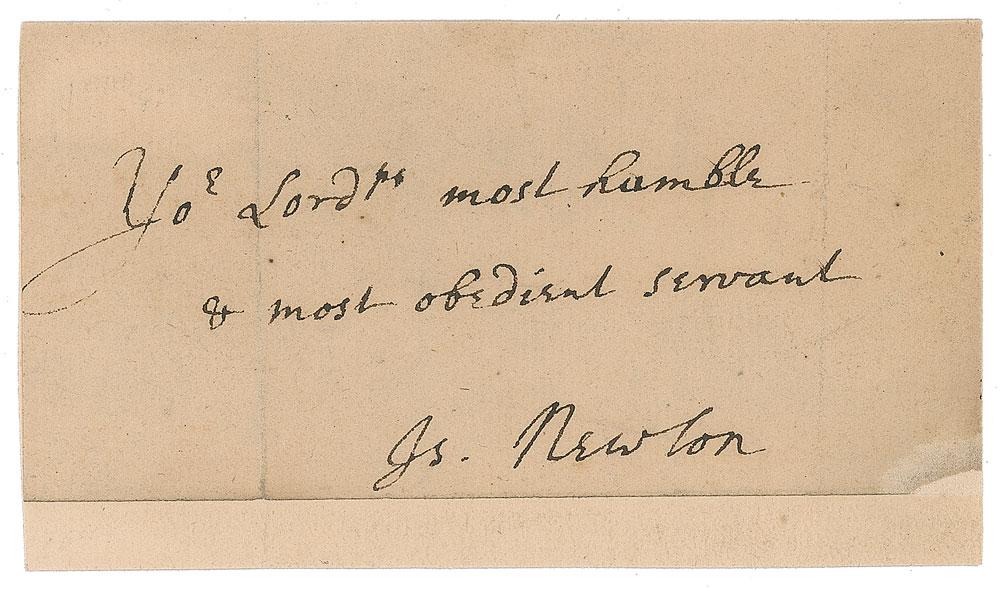 Yoʳ Lordᵖˢ most humble
& most obedient servant
Is. Newton